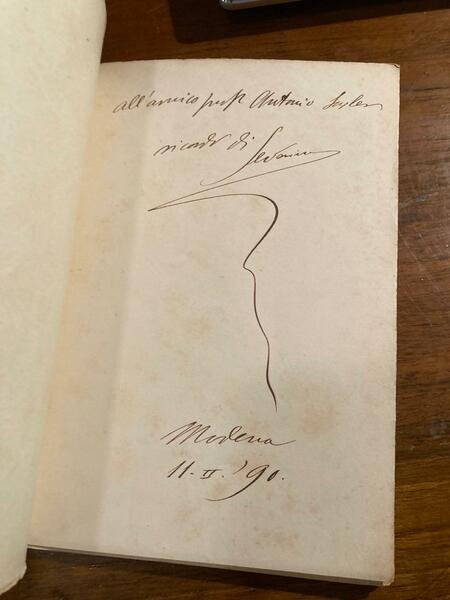 all'amico prof. Antonio
ricordo di Severino
Modena
11 - II. '90.